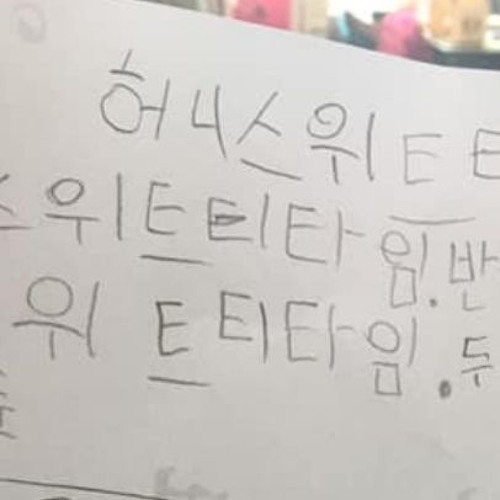 허니스위트티
스위트티타임.반
위트티타임.두